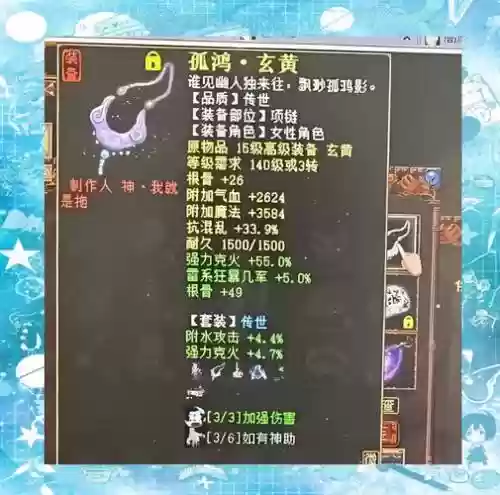 装备
孤鸿·玄黄
谁见幽人独来往，飘渺孤鸿影。
【品质】传世
【装备部位】项链
【装备角色】女性角色
原物品 15级高级装备 玄黄
等级需求 140级或3转
根骨 +26
附加气血 +2624
附加魔法 +3584
抗混乱 +33.9%
耐久 1500/1500
强力克火 +55.0%
雷系狂暴几率 +5.0%
根骨 +49
制作人 神·我就
是拖
【套装】传世
附水攻击 +4.4%
强力克火 +4.7%
[3/3]加强伤害
[3/6]如有神助